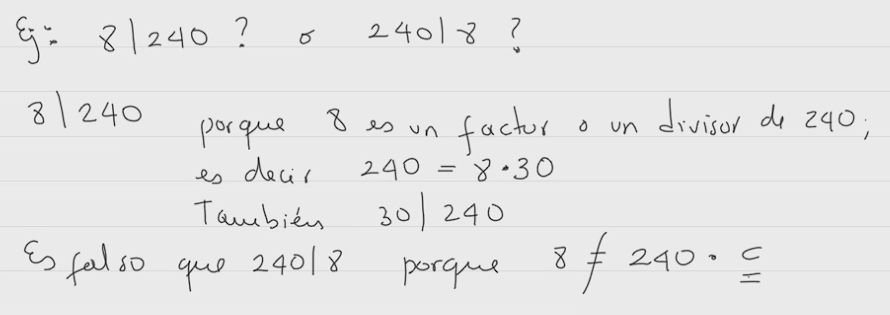 Ej: 8|240 ? o 240|8 ?
8|240 porque 8 es un factor o un divisor de 240;
es decir 240 = 8·30
También 30|240
Es falso que 240|8 porque 8 ≠ 240·c